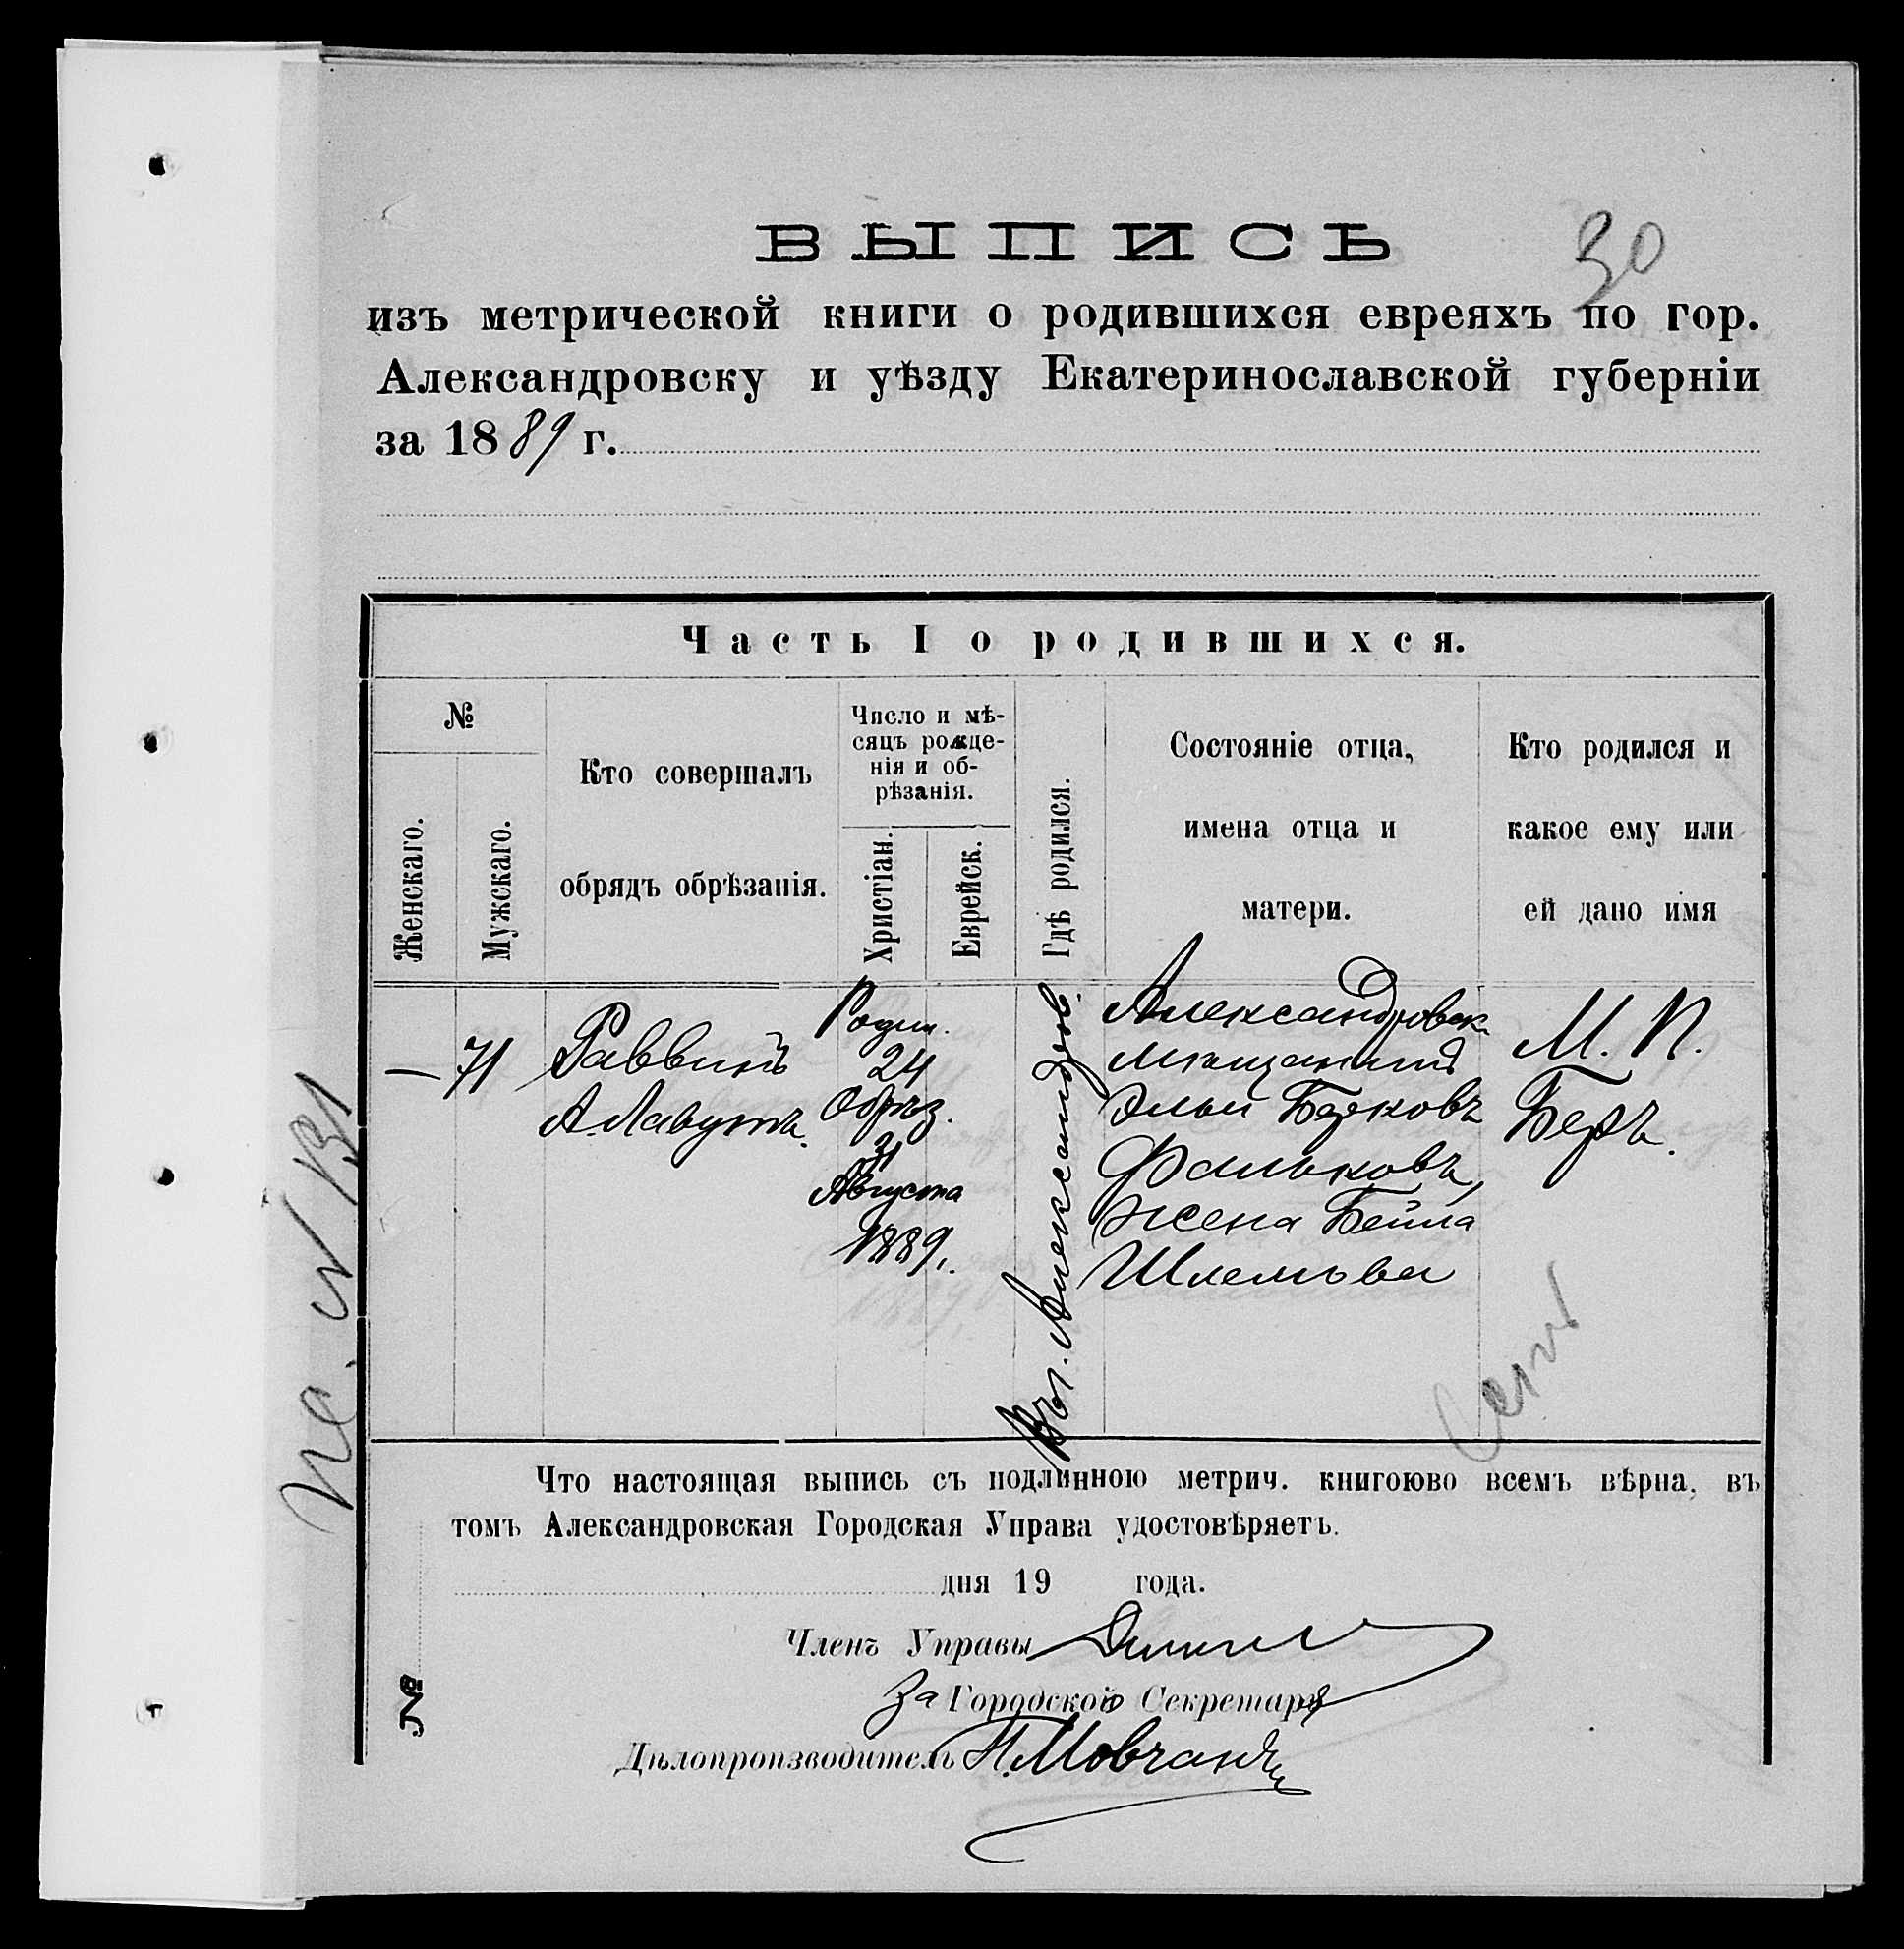 ВЫПИСЬ
30
изъ метрической книги о родившихся евреяхъ по гор.
Александровску и уѣзду Екатеринославской губерніи
за 1889 г.
Часть I о родившихся.
№
Женскаго.
Мужскаго.
Кто совершалъ
обрядъ обрѣзанія.
Число и мѣ-
сяцъ рожде-
нія и об-
рѣзанія.
Христіан.
Еврейск.
Гдѣ родился.
Состояніе отца,
имена отца и
матери.
Кто родился и
какое ему или
ей дано имя
—
71
Раввинъ
А. Лавутъ.
Родил.
24
Обрѣз.
31
Августа
1889.
Въ г. Александров.
Александровск.
мѣщанинъ
Эльи Берковъ
Фальковъ,
жена Бейла
Шлемова
М. П.
Беръ.
Что настоящая выпись съ подлинною метрич. книгоюво всемъ вѣрна, въ
томъ Александровская Городская Управа удостовѣряетъ.
дня 19 года.
Членъ Управы
За Городской Секретаря
№
Дѣлопроизводитель Н. Мовчанъ